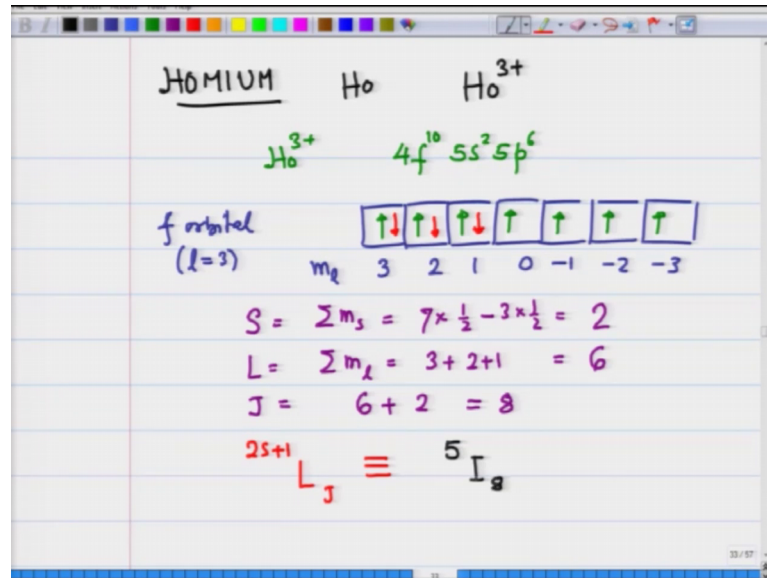 HOMIUM Ho Ho³⁺
Ho³⁺ 4f¹⁰ 5s² 5p⁶
↑↓ ↑↓ ↑↓ ↑ ↑ ↑ ↑
f orbital
(l=3) mₗ 3 2 1 0 -1 -2 -3
S = Σmₛ = 7 × 1/2 - 3 × 1/2 = 2
L = Σmₗ = 3 + 2 + 1 = 6
J = 6 + 2 = 8
²ˢ⁺¹L_J ≡ ⁵I₈
33 / 57
33